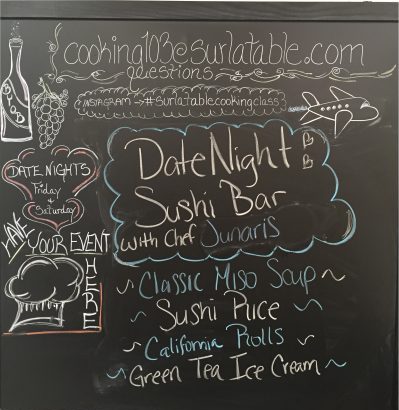 cooking103@surlatable.com
questions
INSTAGRAM → #surlatablecookingclass
BYOB
DATE NIGHTS
Friday
&
Saturday
HAVE
YOUR EVENT
HERE
Date Night
Sushi Bar
with Chef Junaris
~ Classic Miso Soup ~
~ Sushi Rice ~
~ California Rolls ~
~ Green Tea Ice Cream ~